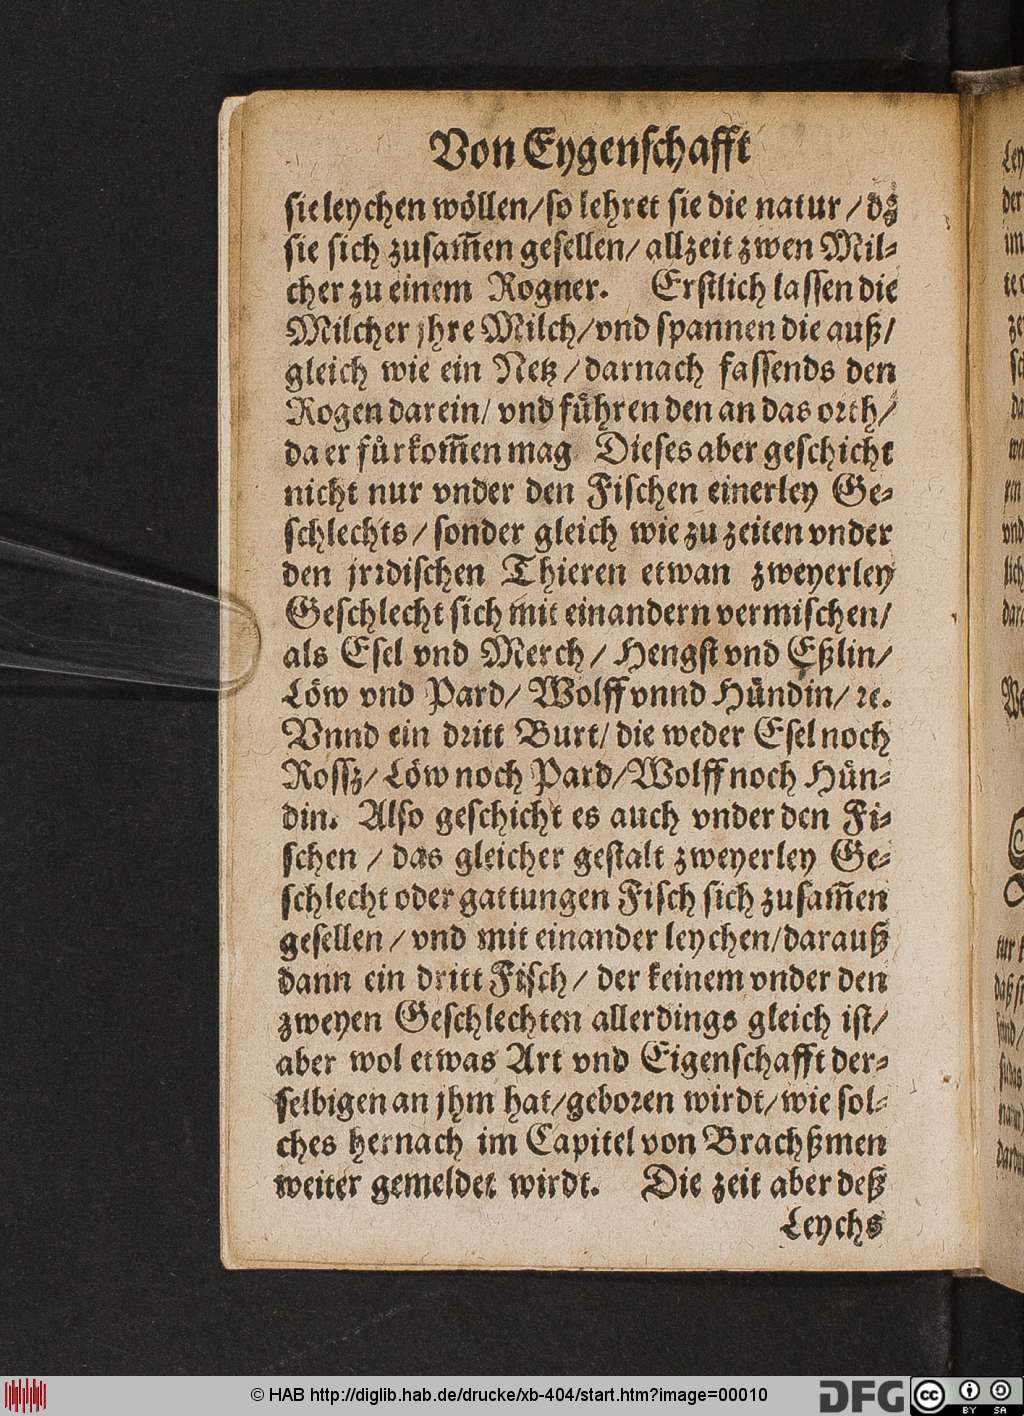 Von Eygenschafft
sie leychen wöllen/so lehret sie die natur/dz
sie sich zusam̃en gesellen/ allzeit zwen Mil-
cher zu einem Rogner. Erstlich lassen die
Milcher jhre Milch/vnd spannen die auß/
gleich wie ein Netz/darnach fassends den
Rogen darein/ vnd führen den an das orth/
da er fürkom̃en mag Dieses aber geschicht
nicht nur vnder den Fischen einerley Ge-
schlechts/sonder gleich wie zu zeiten vnder
den jrrdischen Thieren etwan zweyerley
Geschlecht sich mit einandern vermischen/
als Esel vnd Merch/ Hengst vnd Eßlin/
Löw vnd Pard/ Wolff vnnd Hündin/ ꝛc.
Vnnd ein dritt Burt/ die weder Esel noch
Rossz/ Löw noch Pard/Wolff noch Hün-
din. Also geschicht es auch vnder den Fi-
schen / das gleicher gestalt zweyerley Ge-
schlecht oder gattungen Fisch sich zusam̃en
gesellen/vnd mit einander leychen/darauß
dann ein dritt Fisch/ der keinem vnder den
zweyen Geschlechten allerdings gleich ist/
aber wol etwas Art vnd Eigenschafft der-
selbigen an jhm hat/geboren wirdt/wie sol-
ches hernach im Capitel von Brachßmen
weiter gemeldet wirdt. Die zeit aber deß
Leychs
© HAB http://diglib.hab.de/drucke/xb-404/start.htm?image=00010
DFG
cc BY SA